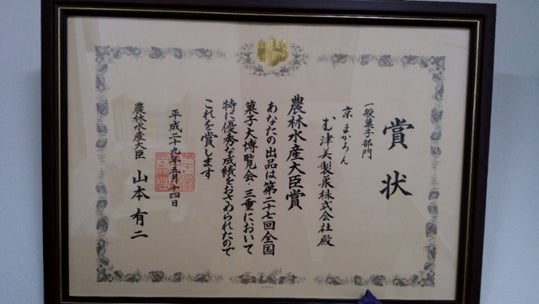 賞状
一般菓子部門
京 まかろん
む津美製菓株式会社殿
農林水産大臣賞
あなたの出品は第二十七回全国
菓子大博覧会・三重において
特に優秀な成績をおさめられたので
これを賞します
平成二十九年五月十四日
農林水産大臣 山本有二